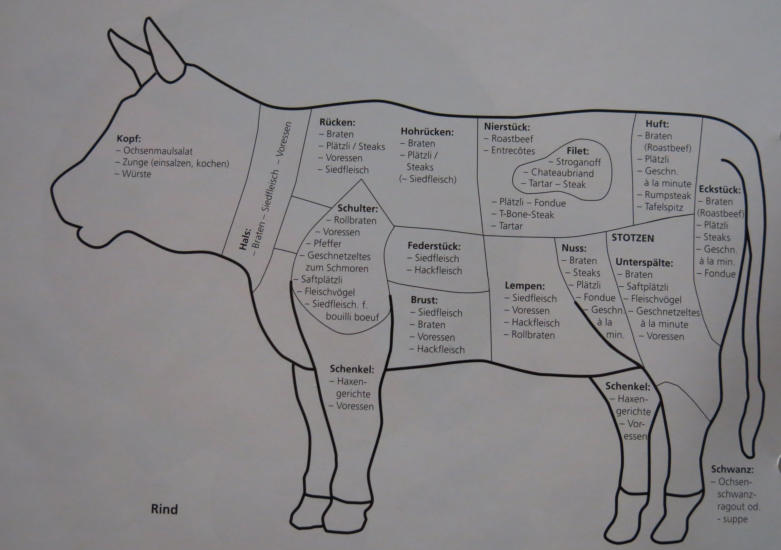 Kopf:
– Ochsenmaulsalat
– Zunge (einsalzen, kochen)
– Würste
Hals:
– Braten – Siedfleisch – Voressen
Rücken:
– Braten
– Plätzli / Steaks
– Voressen
– Siedfleisch
Hohrücken:
– Braten
– Plätzli /
Steaks
(– Siedfleisch)
Nierstück:
– Roastbeef
– Entrecôtes
Filet:
– Stroganoff
– Chateaubriand
– Tartar – Steak
– Plätzli – Fondue
– T-Bone-Steak
– Tartar
Huft:
– Braten
(Roastbeef)
– Plätzli
– Geschn.
à la minute
– Rumpsteak
– Tafelspitz
Eckstück:
– Braten
(Roastbeef)
– Plätzli
– Steaks
– Geschn.
à la min.
– Fondue
Schulter:
– Rollbraten
– Voressen
– Pfeffer
– Geschnetzeltes
zum Schmoren
– Saftplätzli
– Fleischvögel
– Siedfleisch. f.
bouilli boeuf
Federstück:
– Siedfleisch
– Hackfleisch
Brust:
– Siedfleisch
– Braten
– Voressen
– Hackfleisch
Lempen:
– Siedfleisch
– Voressen
– Hackfleisch
– Rollbraten
Nuss:
– Braten
– Steaks
– Plätzli
– Fondue
– Geschn.
à la
min.
STOTZEN
Unterspälte:
– Braten
– Saftplätzli
– Fleischvögel
– Geschnetzeltes
à la minute
– Voressen
Schenkel:
– Haxen-
gerichte
– Voressen
Schenkel:
– Haxen-
gerichte
– Vor-
essen
Schwanz:
– Ochsen-
schwanz-
ragout od.
- suppe
Rind